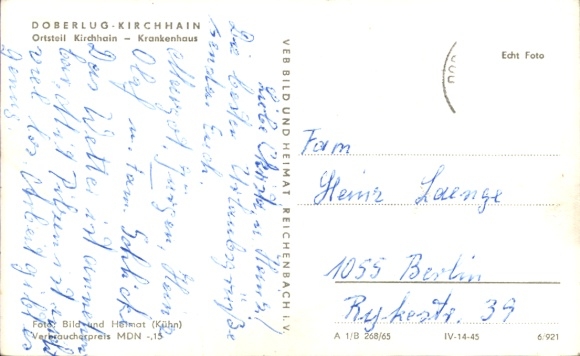 DOBERLUG-KIRCHHAIN
Ortsteil Kirchhain – Krankenhaus
Liebe Christa u. Heinz!
Die besten Urlaubsgrüße
senden Euch
Margot, Jürgen, Hans
Olaf u. Fam.
Das Wetter ist
Mit Pilzen ist nicht
viel los. Arbeit gibt es
genug.
Foto: Bild und Heimat (Kühn)
Verbraucherpreis MDN -,15
VEB BILD UND HEIMAT REICHENBACH i. V.
Echt Foto
Fam
Heinz Laenge
1055 Berlin
Rykestr. 39
A 1/B 268/65 IV-14-45 6/921